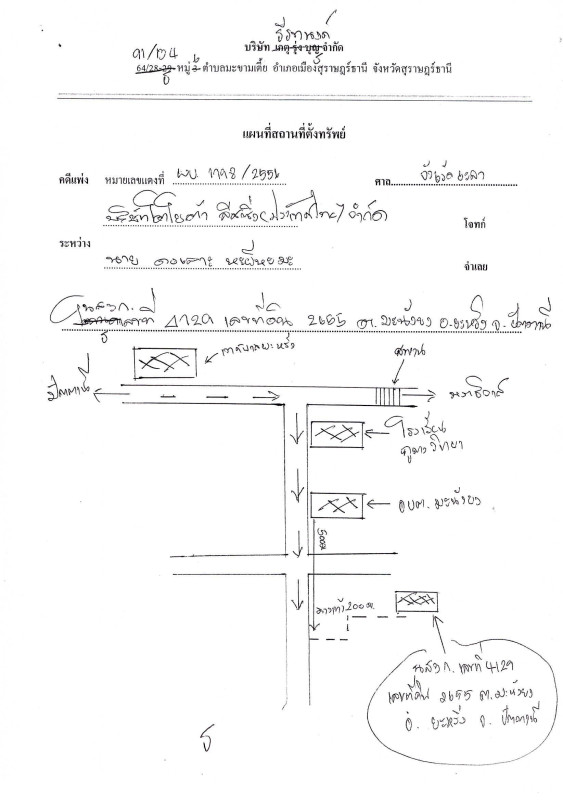 ธีรานนต์
บริษัท เกตุ รุ่ง บุญ จำกัด
91/124
64/28-29 หมู่ 3 6 ตำบลมะขามเตี้ย อำเภอเมืองสุราษฎร์ธานี จังหวัดสุราษฎร์ธานี
แผนที่สถานที่ตั้งทรัพย์
คดีแพ่ง หมายเลขแดงที่ ผบ. 1198/2551 ศาล จังหวัดยะลา
บริษัทโตโยต้า ลีสซิ่ง(ประเทศไทย) จำกัด โจทก์
ระหว่าง
นาย จำเลย
น.ส.3 ก. เลขที่ 4129 เลขที่ดิน 2655 ต.มะนังยง อ.ยะหริ่ง จ.ปัตตานี
เทศบาลยะหริ่ง
สะพาน
ปัตตานี
นราธิวาส
โรงเรียน
วิทยา
อบต. มะนังยง
500 ม.
200 ม.
น.ส.3 ก. เลขที่ 4129
เลขที่ดิน 2655 ต.มะนังยง
อ. ยะหริ่ง จ. ปัตตานี